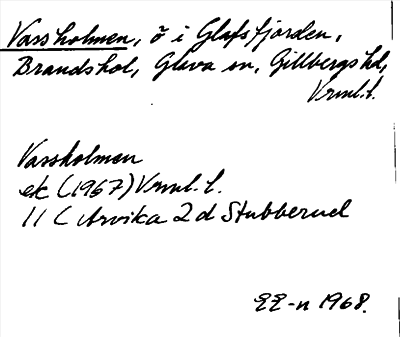 Vassholmen, ö i Glafsfjorden,
Brandshol, Glava sn, Gillbergs hd,
Vrml. l.
Vassholmen
ek (1967) Vrml. l.
11 C Arvika 2 d Stubberud
EE-n 1968.